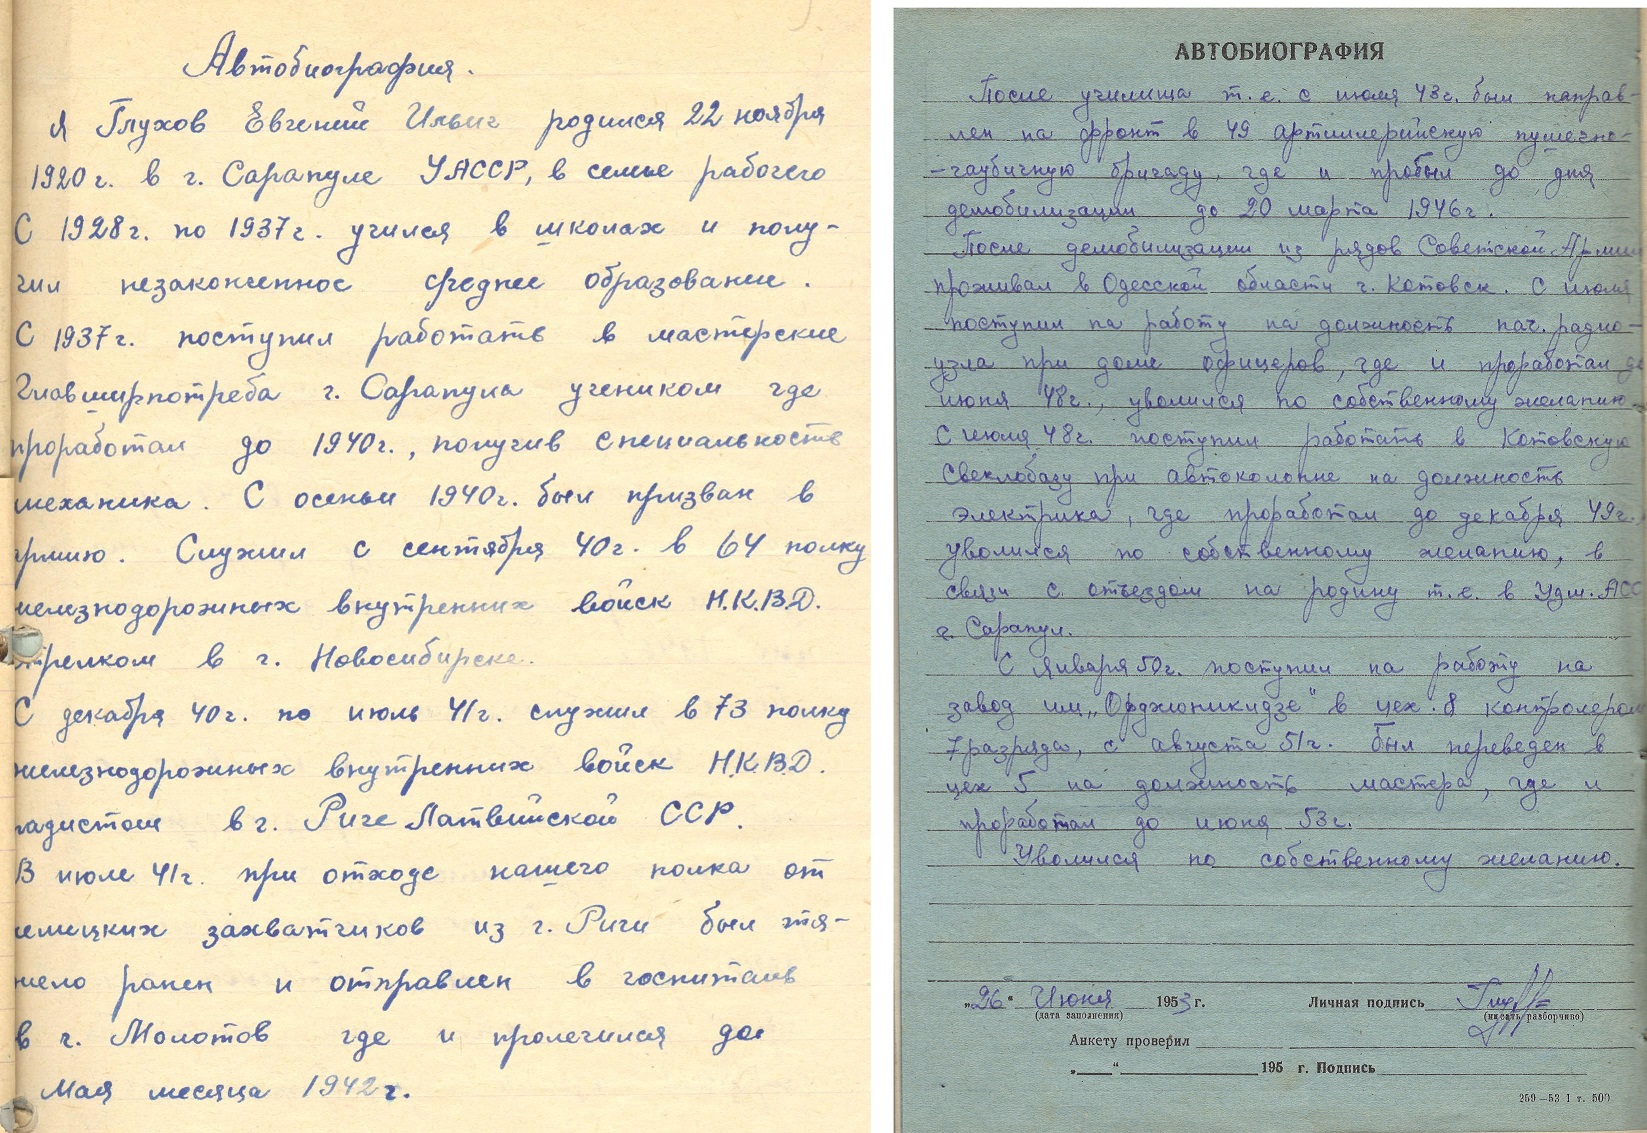 Автобиография.
Я Глухов Евгений Ильич родился 22 ноября
1920 г. в г. Сарапуле УАССР, в семье рабочего
С 1928 г. по 1937 г. учился в школах и полу-
чил незаконченное среднее образование.
С 1937 г. поступил работать в мастерские
Главширпотреба г. Сарапула учеником где
проработал до 1940 г., получив специальность
механика. С осени 1940 г. был призван в
армию. Служил с сентября 40 г. в 64 полку
железнодорожных внутренних войск Н.К.В.Д.
стрелком в г. Новосибирске.
С декабря 40 г. по июль 41 г. служил в 73 полку
железнодорожных внутренних войск Н.К.В.Д.
радистом в г. Риге Латвийской ССР.
В июле 41 г. при отходе нашего полка от
немецких захватчиков из г. Риги был тя-
жело ранен и отправлен в госпиталь
в г. Молотов где и пролечился до
Мая месяца 1942 г.
АВТОБИОГРАФИЯ
После училища т. е. с июля 43 г. был направ-
лен на фронт в 49 артиллерийскую пушечно-
-гаубичную бригаду, где и пробыл до дня
демобилизации до 20 марта 1946 г.
После демобилизации из рядов Советской Армии
проживал в Одесской области г. Котовск. С июля
поступил на работу на должность нач. радио-
узла при доме офицеров, где и проработал до
июня 48 г., уволился по собственному желанию.
С июля 48 г. поступил работать в Котовскую
Свеклобазу при автоколонне на должность
электрика, где проработал до декабря 49 г.
Уволился по собственному желанию, в
связи с отъездом на родину т. е. в Удм. АСС
г. Сарапул.
С Января 50 г. поступил на работу на
завод им „Орджоникидзе" в цех. 8 контролером
7 разряда, с августа 51 г. был переведен в
цех 5 на должность мастера, где и
проработал до июня 53 г.
Уволился по собственному желанию.
„26" Июня 1953 г. Личная подпись
(дата заполнения) (писать разборчиво)
Анкету проверил
„ " 195 г. Подпись
259—53 1 т. 500